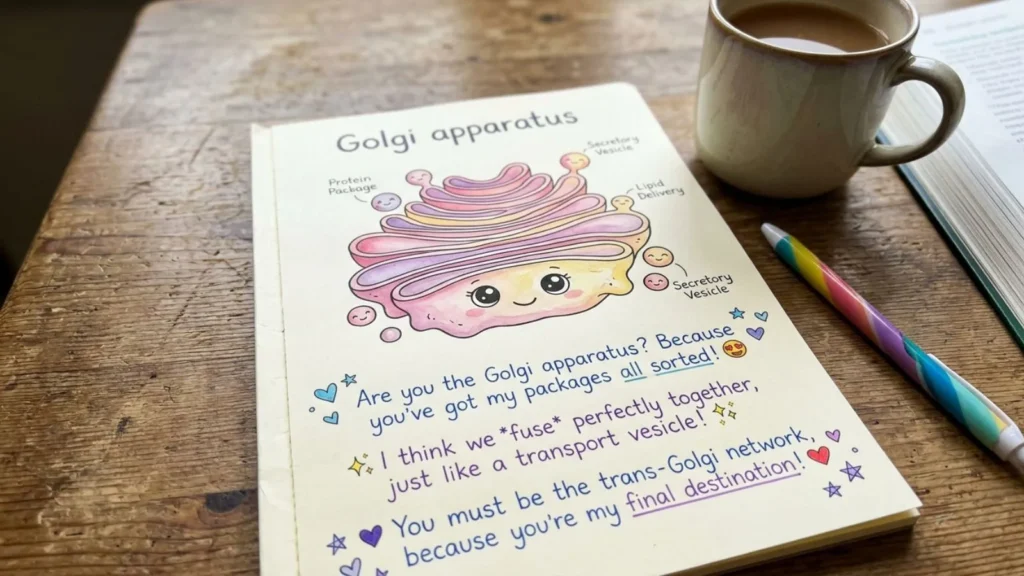 Golgi apparatus
Secretory
Vesicle
Protein
Package
Lipid
Delivery
Secretory
Vesicle
Are you the Golgi apparatus? Because
you've got my packages all sorted! 😍
I think we *fuse* perfectly together,
just like a transport vesicle!
You must be the trans-Golgi network,
because you're my final destination!